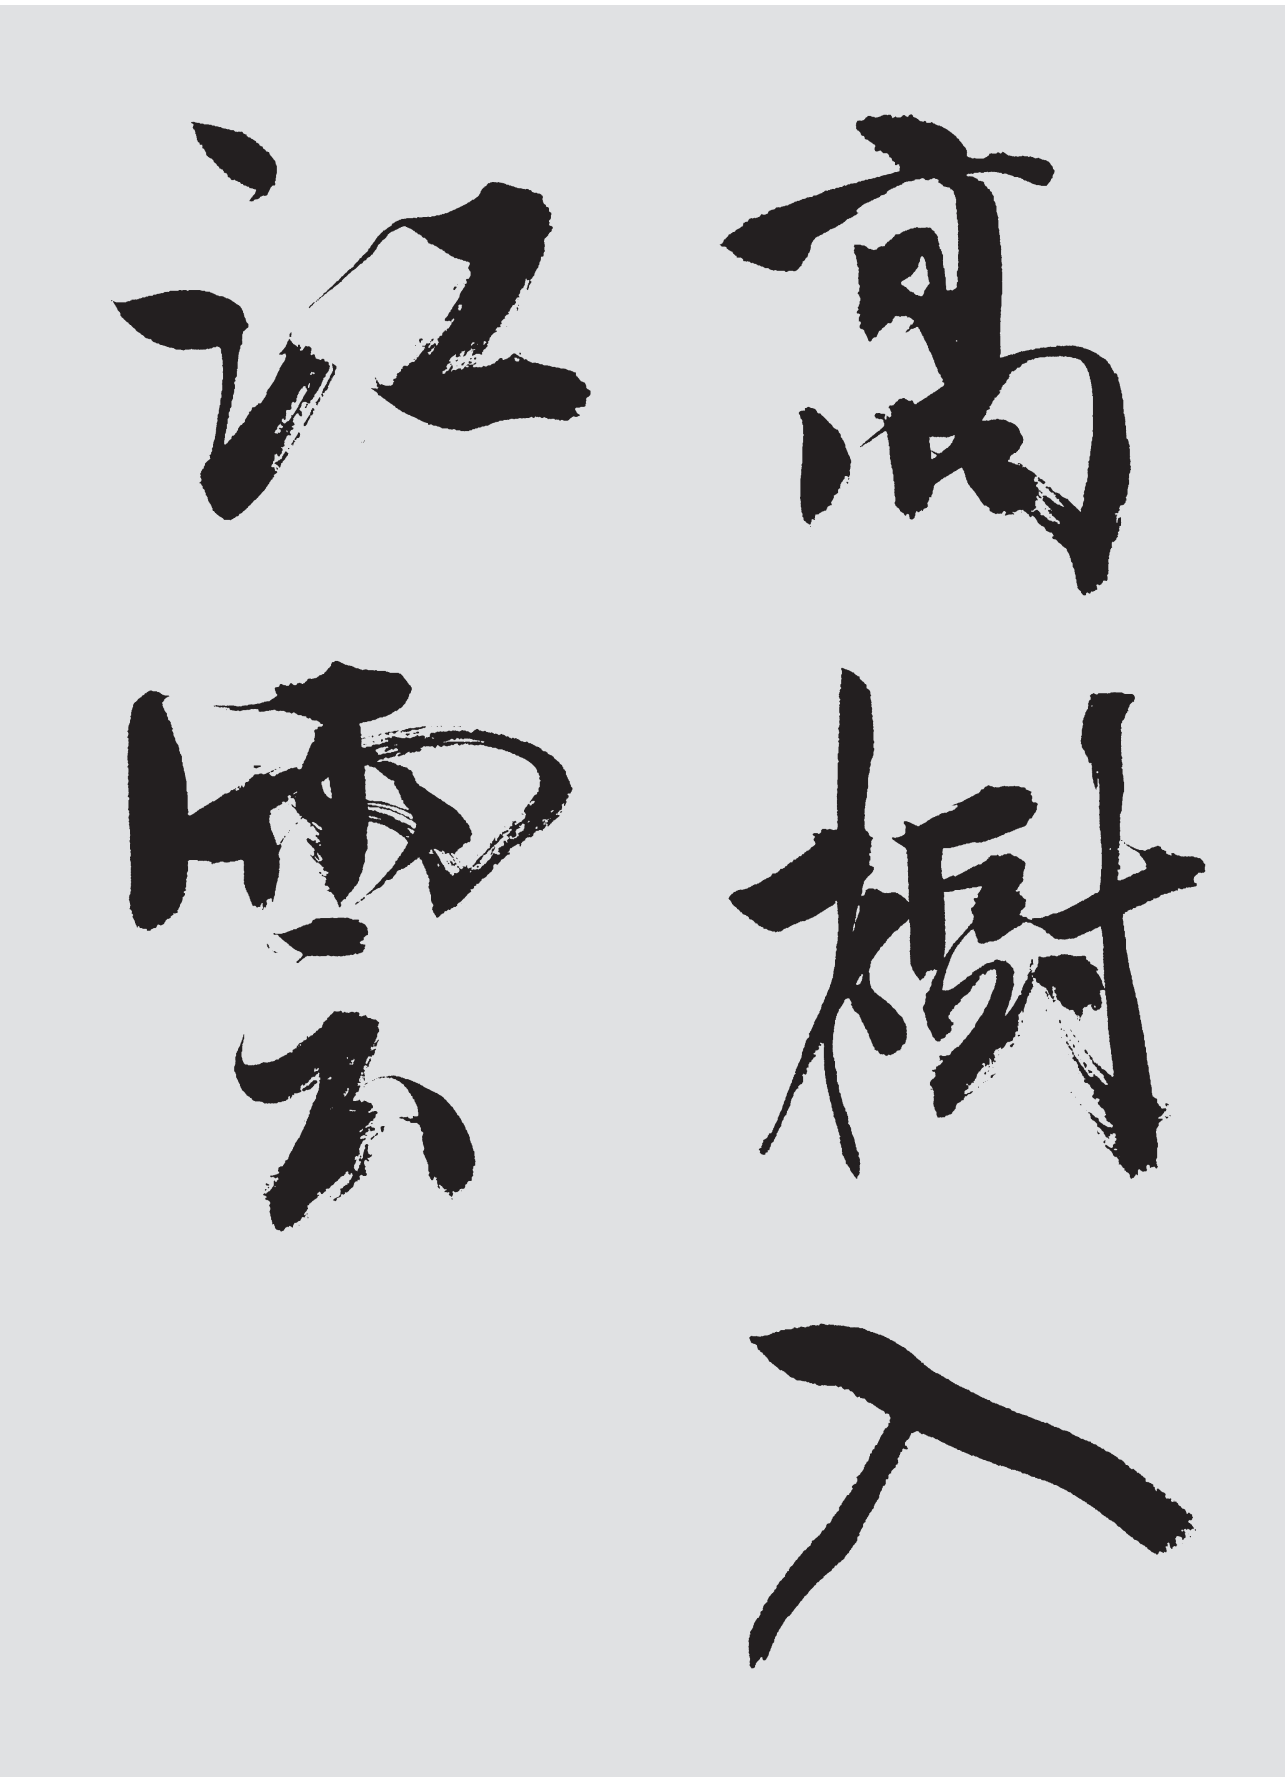 高樹入
江雲